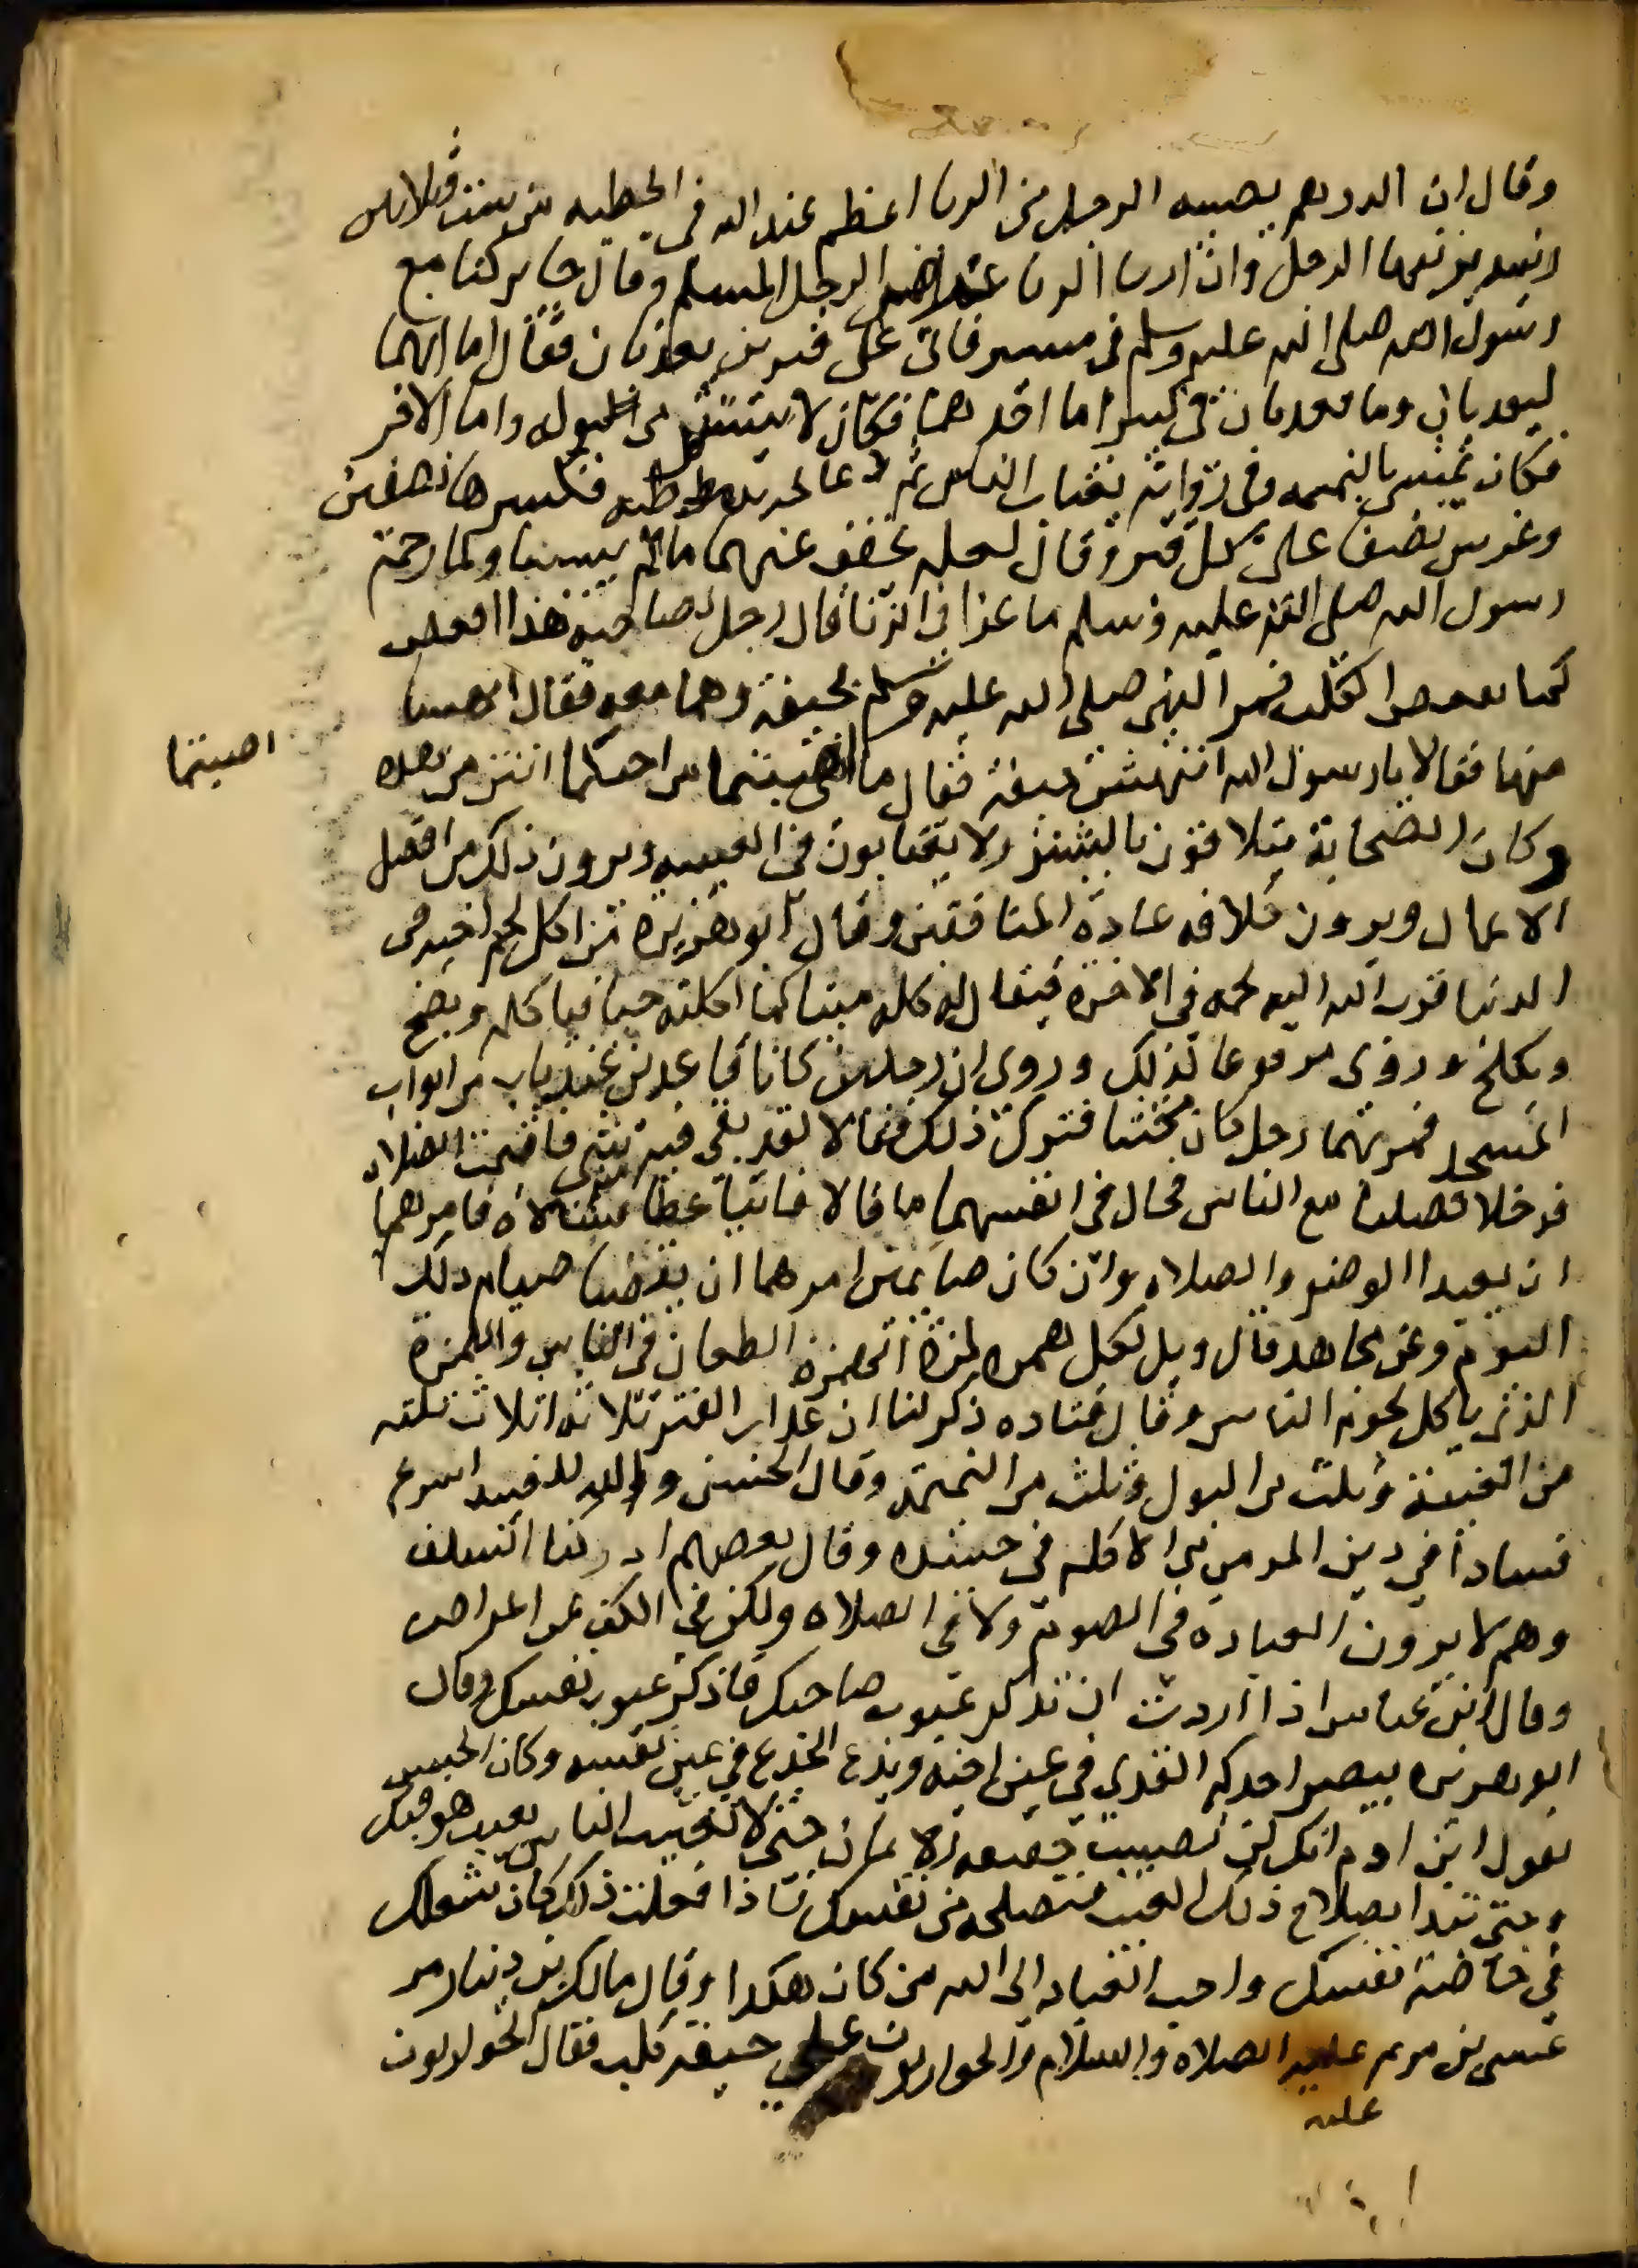 وقال ان الدرهم يصيبه الرجل من الربا اعظم عند الله في الخطيه من ست وثلاثين
زنيه يزنيها الرجل وان اربا الربا عرض الرجل المسلم وقال جابر كنا مع
رسول الله صلى الله عليه وسلم في مسير فاتى على قبرين يعذبان فقال اما انهما
ليعذبان وما يعذبان في كبير اما احدهما فكان لا يستنزه من البول واما الاخر
فكان يمشي بالنميمه وفي رواية يغتاب الناس ثم دعا بجريده رطبه فكسرها نصفين
وغرس نصفا على كل قبر وقال لعله يخفف عنهما ما لم ييبسا ولما رجم
رسول الله صلى الله عليه وسلم ماعزا في الزنا قال رجل لصاحبه هذا اقعص
كما يقعص الكلب فمر النبي صلى الله عليه وسلم بجيفة وهما معه فقال انهشا
منها فقالا يا رسول الله اننهش جيفة فقال ما اصبتما من اخيكما انتن من هذه
اصبتما
وكان الصحابة يتلاقون بالبشر ولا يغتابون في الغيبه ويرون ذلك من افضل
الاعمال ويرون خلافه عادة المنافقين وقال ابو هريره من اكل لحم اخيه في
الدنيا قرب الله اليه لحمه في الاخرة فيقال له كله ميتا كما اكلته حيا فياكله ويضج
ويكلح وروى مرفوعا كذلك وروى ان رجلين كانا قاعدين عند باب من ابواب
المسجد فمر بهما رجل كان مخنثا فترك ذلك فقالا لقد بقي فيه شي فاقيمت الصلاه
فدخلا فصليا مع الناس فحال في انفسهما ما قالا فاتيا عطا فسالاه فامرهما
ان يعيدا الوضو والصلاه وان كان صايمين امرهما ان يقضيا صيام ذلك
اليوم وعن مجاهد قال ويل لكل همزه لمزة الهمزه الطعان في الناس واللمزة
الذي ياكل لحوم الناس وقال قتاده ذكر لنا ان عذاب القبر ثلاثه اثلاث ثلثه
من الغيبة وثلث من البول وثلث من النميمة وقال الحسن والله للغيبه اسرع
فسادا في دين المومن من الاكله في جسده وقال بعضهم ادركنا السلف
وهم لا يرون العباده في الصوم ولا في الصلاه ولكن في الكف عن اعراض
وقال ابن عباس اذا اردت ان تذكر عيوب صاحبك فاذكر عيوب نفسك وقال
ابو هريره يبصر احدكم القذي في عين اخيه ويدع الجذع في عين نفسه وكان الحسن
يقول ابن ادم انك لن تصيب حقيقه الايمان حتى لا تعيب الناس بعيب هو فيك
وحتى تبدا بصلاح ذلك العيب فتصلحه من نفسك فاذا فعلت ذلك كان شغلك
في خاصة نفسك واحب العباد الى الله من كان هكذا وقال مالك بن دينار مر
عيسى بن مريم عليه الصلاه والسلام والحواريون على جيفة كلب فقال الحواريون
عليه